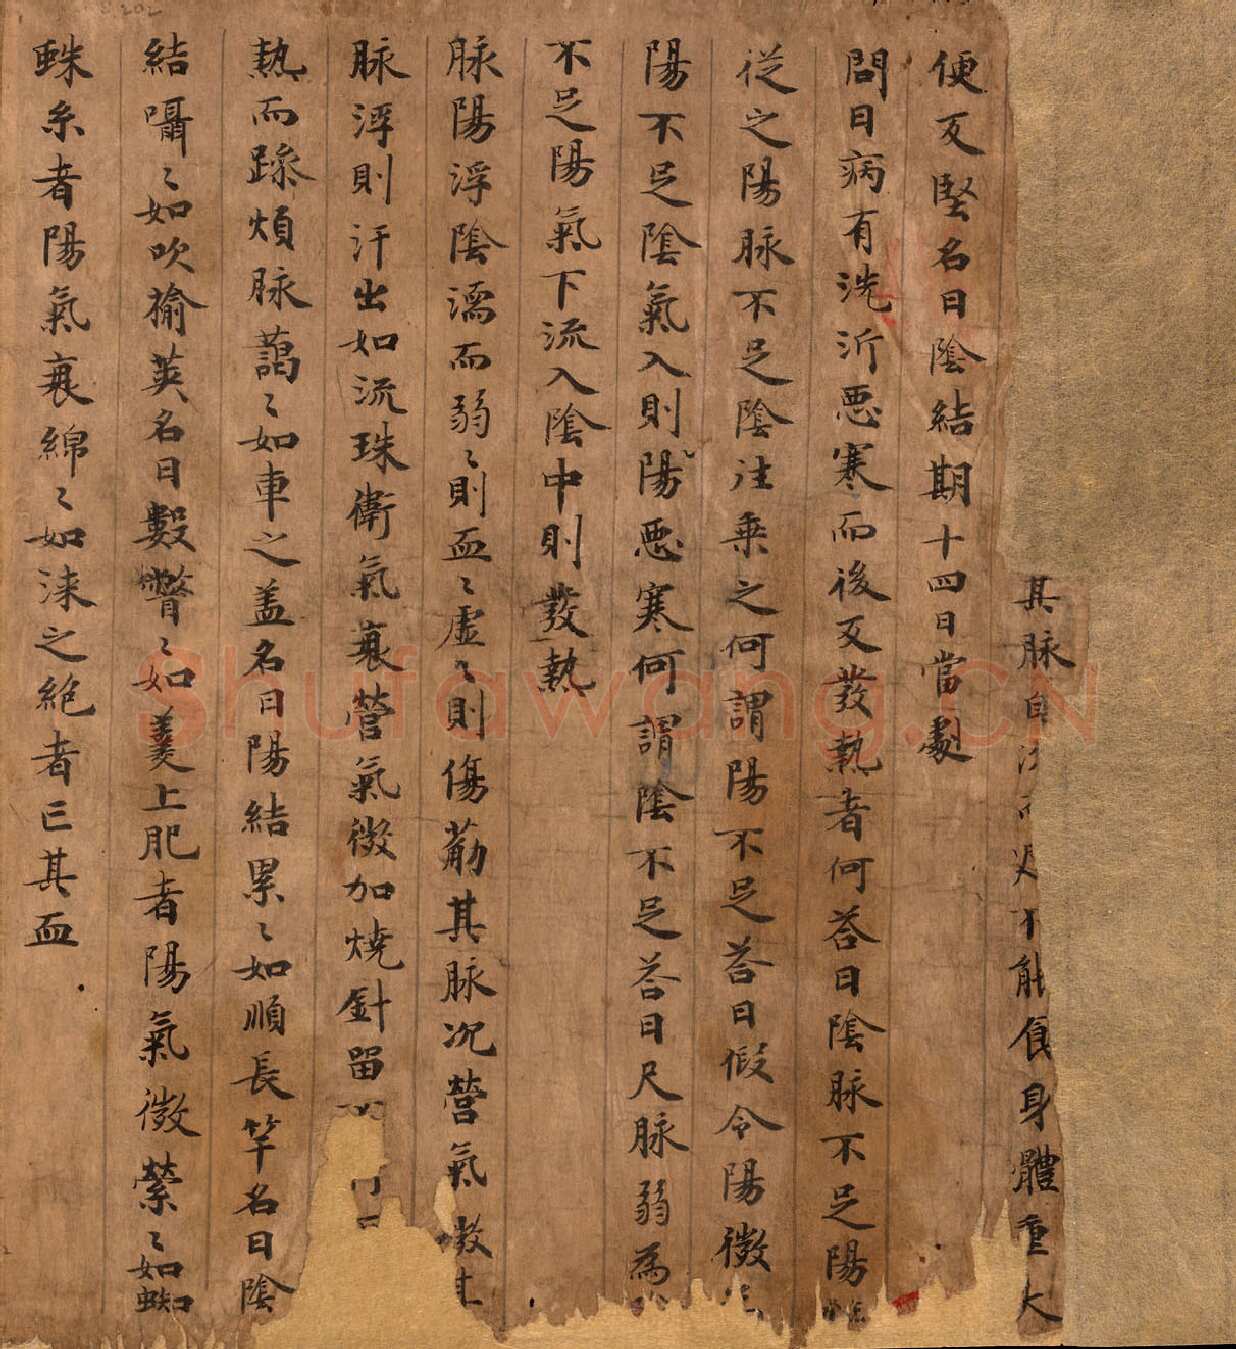 其脉自沉而遲不能食身體重大
便反堅名曰陰結期十四日當劇
問曰病有洗泝惡寒而後反發熱者何荅曰陰脉不足陽
從之陽脉不足陰往乗之何謂陽不足荅曰假令陽微
陽不足陰氣入則陽惡寒何謂陰不足荅曰尺脉弱為
不足陽氣下流入陰中則發熱
脉陽浮陰濡而弱〻則血〻虛〻則傷荕其脉沉營氣微
脉浮則汗出如流珠衛氣衰營氣微加燒針留
熱而躁煩脉藹〻如車之盖名曰陽結累〻如順長竿名曰陰
結囁〻如吹揄莢名曰數瞥〻如羹上肥者陽氣微縈〻如蜘
蛛糸者陽氣衰綿〻如涑之絶者亡其血
Shufawang.CN